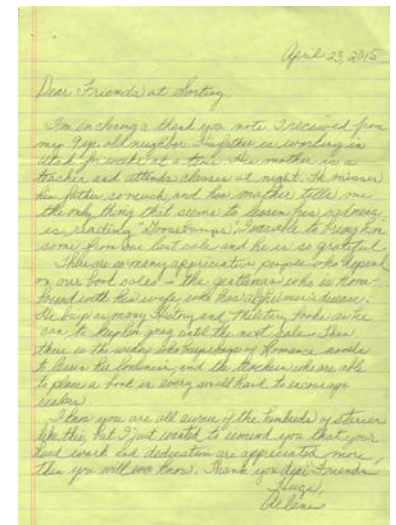 April 23, 2015
Dear Friends at Sorting,
I'm enclosing a thank you note I received from
my 9 yr. old neighbor. His father is working in
Utah for weeks at a time. His mother is a
teacher and attends classes at night. He misses
his father so much, and his mother tells me
the only thing that seems to lessen his sadness
is reading Goosebumps. I was able to bring him
some from our last sale and he is so grateful.
There are so many appreciative people who depend
on our book sales - the gentleman who is home-
bound with his wife, who has alzheimer's disease.
He buys as many History and Military books as he
can, to keep him going until the next sale. Then
there is the widow who buys bags of Romance novels
to lessen her loneliness, and the teachers who are able
to place a book in every small hand to encourage
readers.
I know you are all aware of the hundreds of stories
like this, but I just wanted to remind you that your
hard work and dedication are appreciated more
than you will ever know. Thank you Dear Friends
Hugs,
Arlene